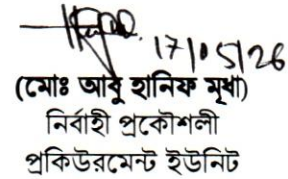 17/05/26
(মোঃ আবু হানিফ মৃধা)
নির্বাহী প্রকৌশলী
প্রকিউরমেন্ট ইউনিট